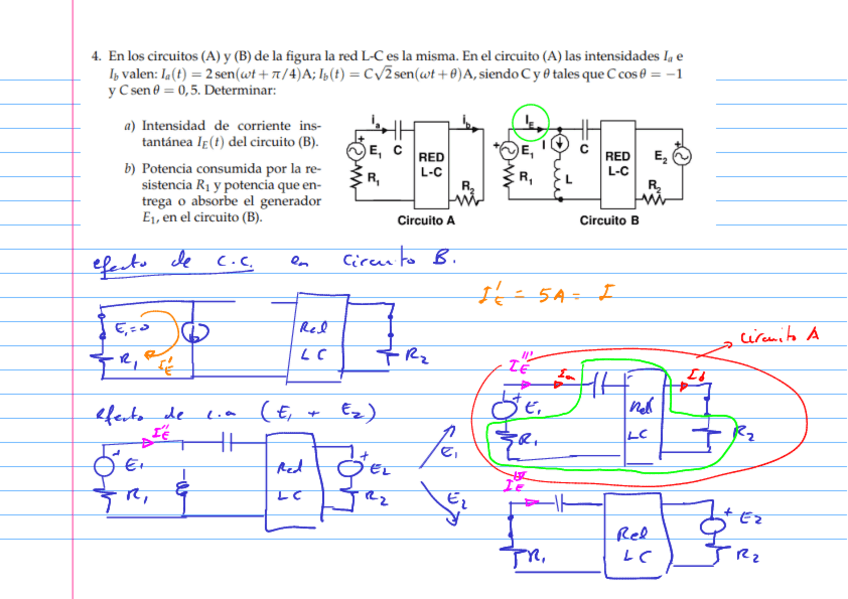 4. En los circuitos (A) y (B) de la figura la red L-C es la misma. En el circuito (A) las intensidades Ia e
Ib valen: Ia(t) = 2 sen(ωt + π/4)A; Ib(t) = C√2 sen(ωt + θ)A, siendo C y θ tales que C cos θ = −1
y C sen θ = 0,5. Determinar:
a) Intensidad de corriente ins-
tantánea IE(t) del circuito (B).
b) Potencia consumida por la re-
sistencia R1 y potencia que en-
trega o absorbe el generador
E1, en el circuito (B).
ia ib
+ E1 C RED
L-C
R1 R2
Circuito A
IE
+ E1 I C RED
L-C E2 +
R1 L R2
Circuito B
efecto de c.c. en circuito B.
E1=0 Red
R1 I'E LC R2
I'E = 5A = I
circuito A
efecto de c.a (E1 + E2)
I''E
+ E1 Red + E2
R1 LC R2
E1
E2
I'''E Ia Ib
+ E1 Red
R1 LC R2
Red + E2
R1 LC R2